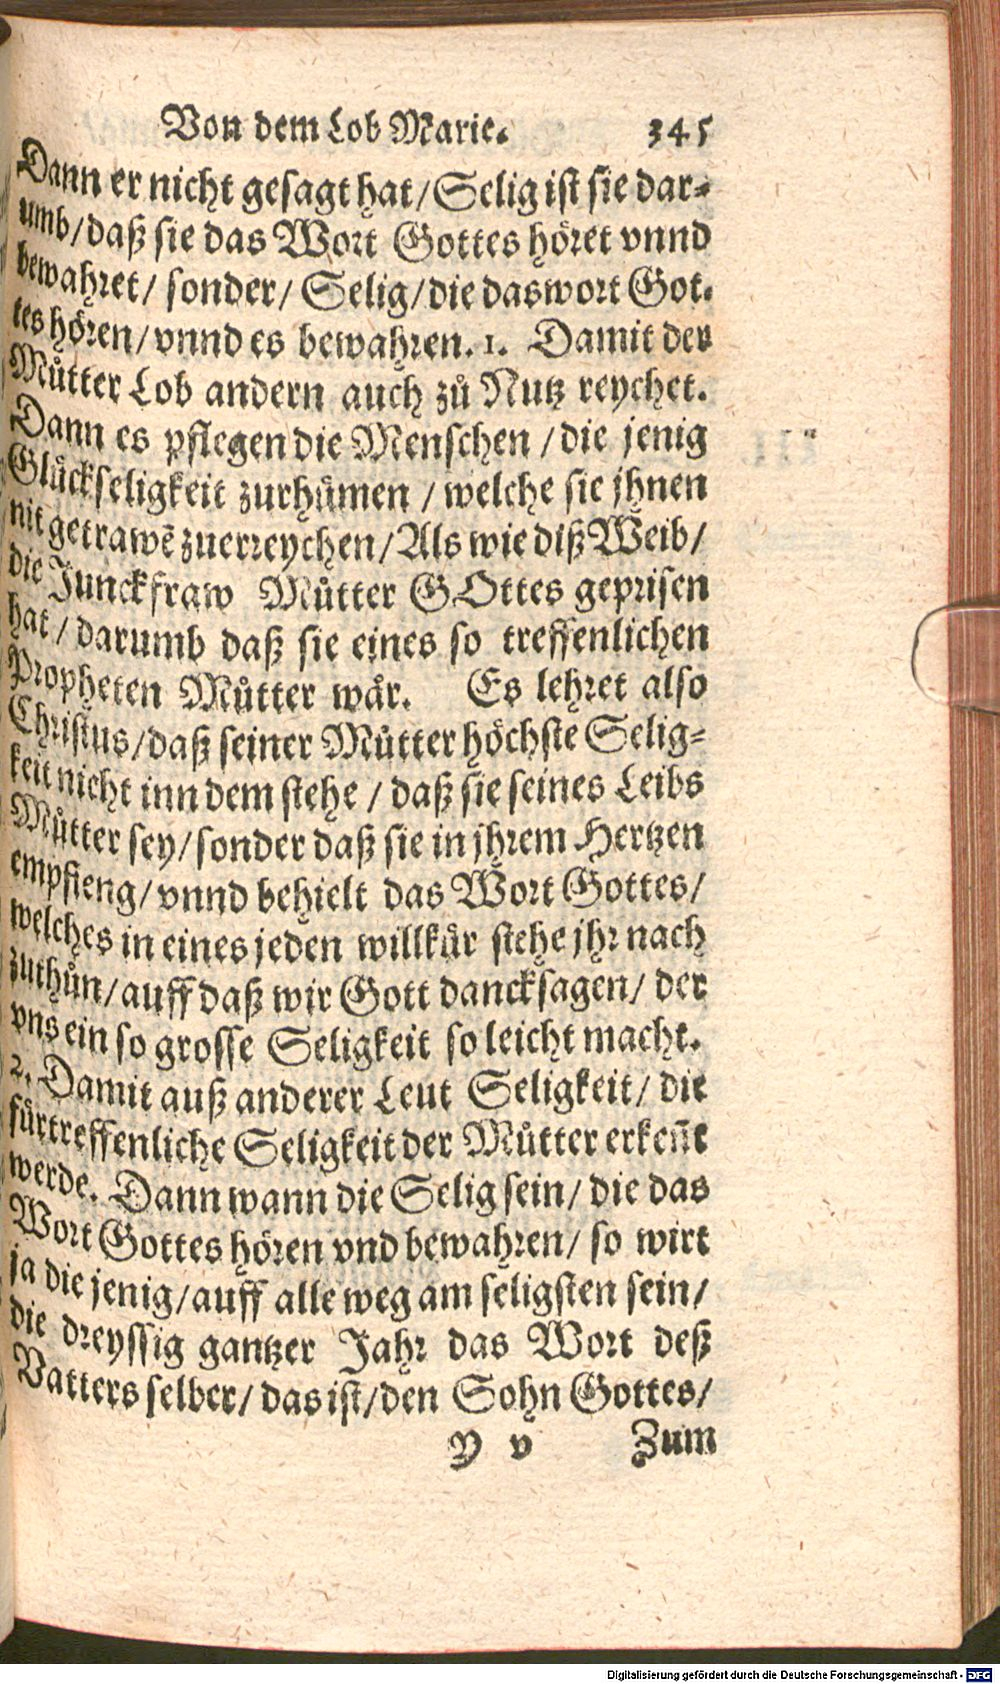 Von dem Lob Marie. 345
Dann er nicht gesagt hat/ Selig ist sie dar-
umb/ daß sie das Wort Gottes höret vnnd
bewahret/ sonder/ Selig/ die das wort Got-
tes hören/ vnnd es bewahren. 1. Damit der
Můtter Lob andern auch zů Nutz reychet.
Dann es pflegen die Menschen / die jenig
Glückseligkeit zurhůmen / welche sie jhnen
nit getrawẽ zuerreychen/ Als wie diß Weib/
die Junckfraw Můtter GOttes geprisen
hat/ darumb daß sie eines so treffenlichen
Propheten Můtter wår. Es lehret also
Christus/ daß seiner Můtter höchste Selig-
keit nicht inn dem stehe / daß sie seines Leibs
Můtter sey/ sonder daß sie in jhrem Hertzen
empfieng/ vnnd behielt das Wort Gottes/
welches in eines jeden willkůr stehe jhr nach
zuthůn/ auff daß wir Gott dancksagen/ der
vns ein so grosse Seligkeit so leicht macht.
2. Damit auß anderer Leut Seligkeit/ die
fürtreffenliche Seligkeit der Můtter erkeñt
werde. Dann wann die Selig sein/ die das
Wort Gottes hören vnd bewahren/ so wirt
ja die jenig/ auff alle weg am seligsten sein/
die dreyssig gantzer Jahr das Wort deß
Vatters selber/ das ist/ den Sohn Gottes/
Y v Zum
Digitalisierung gefördert durch die Deutsche Forschungsgemeinschaft - DFG